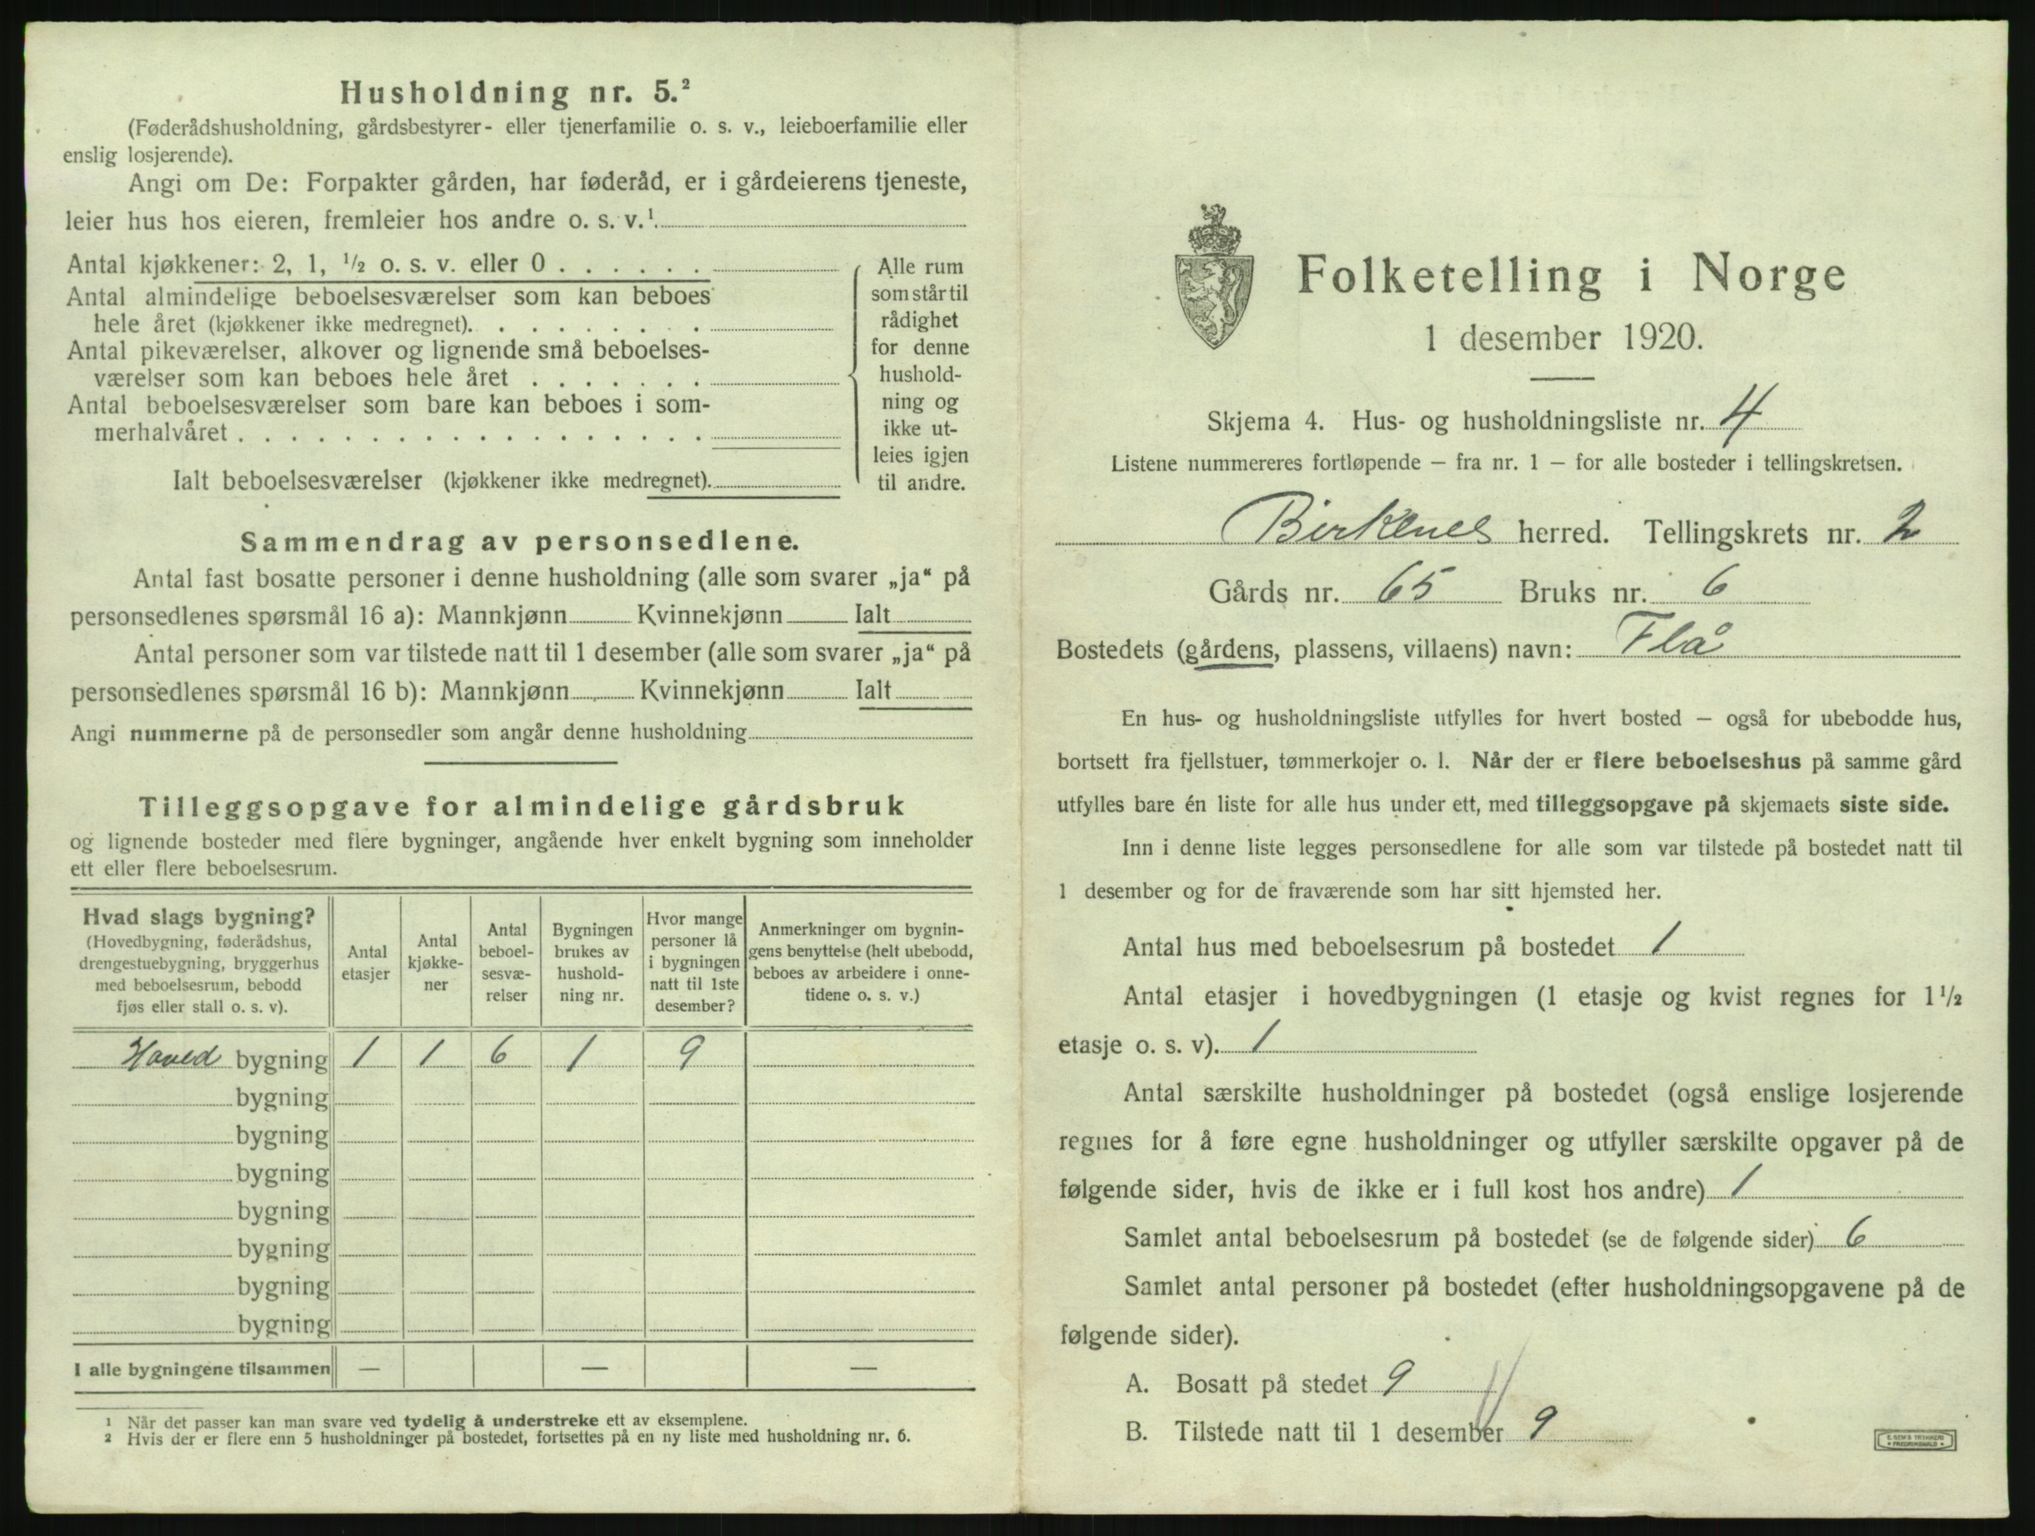 Husholdning nr. 5.²
(Føderådshusholdning, gårdsbestyrer- eller tjenerfamilie o. s. v., leieboerfamilie eller
enslig losjerende).
Angi om De: Forpakter gården, har føderåd, er i gårdeierens tjeneste,
leier hus hos eieren, fremleier hos andre o. s. v.¹
Antal kjøkkener: 2, 1, ½ o. s. v. eller 0 . . . . . .
Antal almindelige beboelsesværelser som kan beboes
hele året (kjøkkener ikke medregnet). . . . . . . .
Antal pikeværelser, alkover og lignende små beboelses-
værelser som kan beboes hele året . . . . . . .
Antal beboelsesværelser som bare kan beboes i som-
merhalvåret . . . . . . . . . . . . . . . . . .
Ialt beboelsesværelser (kjøkkener ikke medregnet).
Alle rum
som står til
rådighet
for denne
hushold-
ning og
ikke ut-
leies igjen
til andre.
Sammendrag av personsedlene.
Antal fast bosatte personer i denne husholdning (alle som svarer „ja“ på
personsedlenes spørsmål 16 a): Mannkjønn Kvinnekjønn Ialt
Antal personer som var tilstede natt til 1 desember (alle som svarer „ja“ på
personsedlenes spørsmål 16 b): Mannkjønn Kvinnekjønn Ialt
Angi nummerne på de personsedler som angår denne husholdning
Tilleggsopgave for almindelige gårdsbruk
og lignende bosteder med flere bygninger, angående hver enkelt bygning som inneholder
ett eller flere beboelsesrum.
Hvad slags bygning?
(Hovedbygning, føderådshus,
drengestuebygning, bryggerhus
med beboelsesrum, bebodd
fjøs eller stall o. s. v).
Antal
etasjer
Antal
kjøkke-
ner
Antal
beboel-
sesvæ-
relser
Bygningen
brukes av
hushold-
ning nr.
Hvor mange
personer lå
i bygningen
natt til 1ste
desember?
Anmerkninger om bygnin-
gens benyttelse (helt ubebodd,
beboes av arbeidere i onne-
tidene o. s. v.)
Hoved bygning 1 1 6 1 9
bygning
bygning
bygning
bygning
bygning
bygning
bygning
I alle bygningene tilsammen — — —
¹ Når det passer kan man svare ved tydelig å understreke ett av eksemplene.
² Hvis der er flere enn 5 husholdninger på bostedet, fortsettes på en ny liste med husholdning nr. 6.
Folketelling i Norge
1 desember 1920.
Skjema 4. Hus- og husholdningsliste nr. 4
Listene nummereres fortløpende – fra nr. 1 – for alle bosteder i tellingskretsen.
Birkenes herred. Tellingskrets nr. 2
Gårds nr. 65 Bruks nr. 6
Bostedets (gårdens, plassens, villaens) navn: Flå
En hus- og husholdningsliste utfylles for hvert bosted – også for ubebodde hus,
bortsett fra fjellstuer, tømmerkojer o. l. Når der er flere beboelseshus på samme gård
utfylles bare én liste for alle hus under ett, med tilleggsopgave på skjemaets siste side.
Inn i denne liste legges personsedlene for alle som var tilstede på bostedet natt til
1 desember og for de fraværende som har sitt hjemsted her.
Antal hus med beboelsesrum på bostedet 1
Antal etasjer i hovedbygningen (1 etasje og kvist regnes for 1½
etasje o. s. v). 1
Antal særskilte husholdninger på bostedet (også enslige losjerende
regnes for å føre egne husholdninger og utfyller særskilte opgaver på de
følgende sider, hvis de ikke er i full kost hos andre) 1
Samlet antal beboelsesrum på bostedet (se de følgende sider) 6
Samlet antal personer på bostedet (efter husholdningsopgavene på de
følgende sider).
A. Bosatt på stedet 9
B. Tilstede natt til 1 desember 9
E. SEM'S TRYKKERI
FREDRIKSHALD